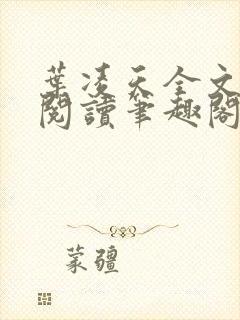 葉凌天全文
閱讀筆趣閣
蒙疆